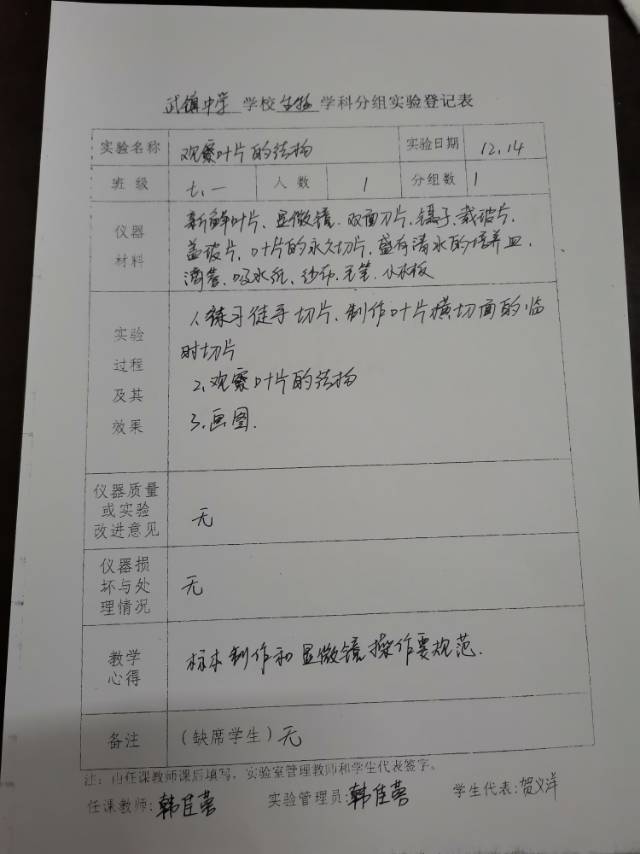 武镇中学 学校 生物 学科分组实验登记表
实验名称 观察叶片的结构 实验日期 12.14
班 级 七、一 人 数 1 分组数 1
仪器
材料
新鲜叶片、显微镜、双面刀片、镊子、载玻片、
盖玻片、叶片的永久切片、盛有清水的培养皿、
滴管、吸水纸、纱布、毛笔、小木板
实验
过程
及其
效果
1、练习徒手切片、制作叶片横切面的临
时切片
2、观察叶片的结构
3、画图.
仪器质量
或实验
改进意见
无
仪器损
坏与处
理情况
无
教学
心得
标本制作和显微镜操作要规范.
备注 (缺席学生) 无
注:由任课教师课后填写,实验室管理教师和学生代表签字。
任课教师:韩佳蓉 实验管理员:韩佳蓉 学生代表:贺义洋